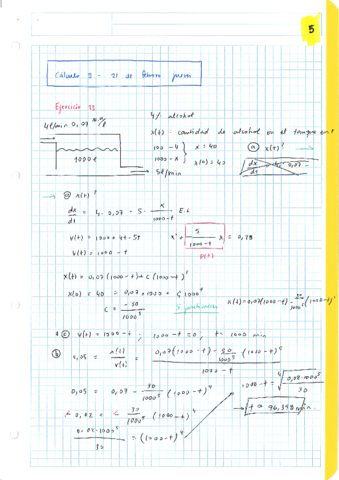 5
Cálculo II - 21 de febrero jueves
Ejercicio 22
4 l/min 0,07
1000 l
5 l/min
4% alcohol
x(t) = cantidad de alcohol en el tanque en t
100 - 4
1000 - x
x = 40
x(0) = 40
a) x(t)?
→ a) x(t)?
dx/dt = 4·0,07 - 5· x/(1000-t) E.L
V(t) = 1000 + 4t - 5t
V(t) = 1000 - t
x' + 5/(1000-t) x = 0,28
P(t)
x(t) = 0,07(1000-t) + C(1000-t)⁵
x(0) = 40 = 0,07·1000 + C 1000⁵
C = -30/1000⁵
x(t) = 0,07(1000-t) - 30/1000⁵ (1000-t)⁵
c) V(t) = 1000-t ; 1000-t = 0 ; t = 1000 min
b) 0,05 = x(t)/V(t) = (0,07(1000-t) - 30/1000⁵ (1000-t)⁵)/(1000-t)
0,05 = 0,07 - 30/1000⁵ (1000-t)⁴
0,02 = 30/1000⁵ (1000-t)⁴
0,02·1000⁵/30 = (1000-t)⁴
1000-t = ⁴√(0,02·1000⁵/30)